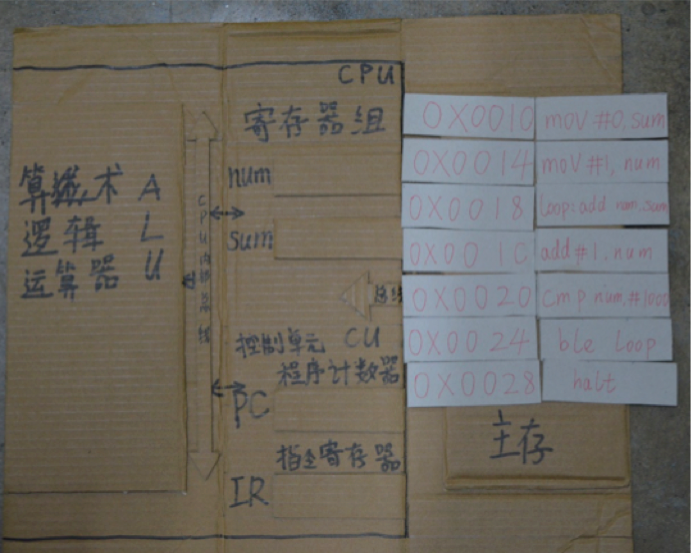 CPU
寄存器组
num
sum
算术
逻辑
运算器
ALU
CPU内部总线
总线
控制单元 CU
程序计数器
PC
指令寄存器
IR
0X0010 mov #0, sum
0X0014 mov #1, num
0X0018 loop: add num, sum
0X001C add #1, num
0X0020 cmp num, #1000
0X0024 ble loop
0X0028 halt
主存